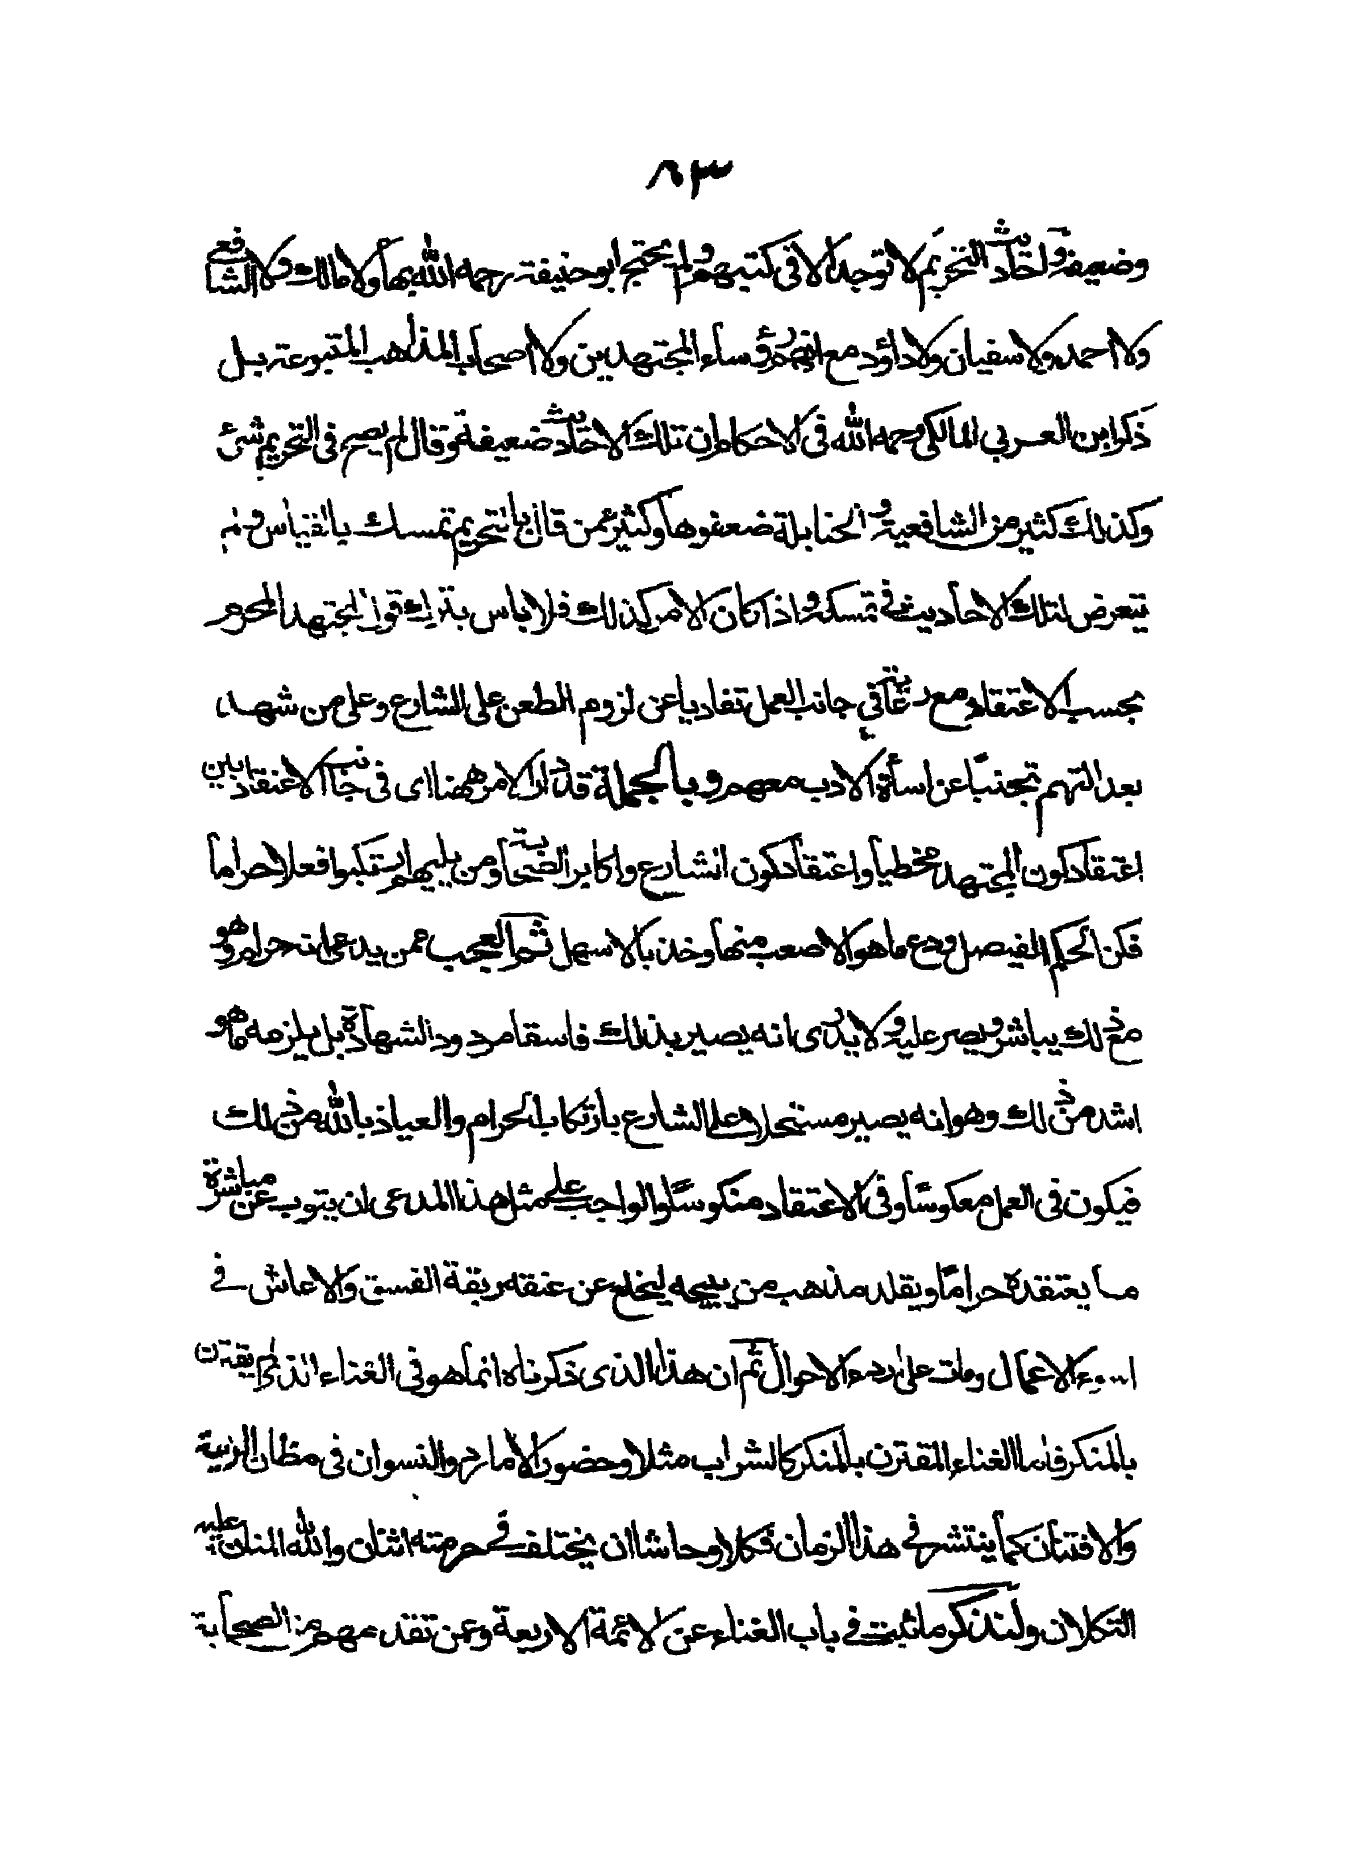 ٨٣
وضعيفة واحاديث التحريم لا توجد الا فى كتبهم ولم يحتج ابو حنيفة رحمه الله بها ولا مالك ولا الشافعى
ولا احمد ولا سفيان ولا داؤد مع انهم رؤساء المجتهدين ولا اصحاب المذاهب المتبوعة بل
ذكر ابن العربي المالكى رحمه الله فى الاحكام ان تلك الاحاديث ضعيفة وقال لم يصح فى التحريم شئ
وكذلك كثير من الشافعية والحنابلة ضعفوها وكثير ممن قال بالتحريم تمسك بالقياس ولم
يتعرض لتلك الاحاديث فى تمسكه واذا كان الامر كذلك فلا باس بترك قول المجتهد المحرم
بحسب الاعتقاد مع رعايته في جانب العمل تفاديا عن لزوم الطعن على الشارع وعلى من شهد
بعدالتهم تجنبًا عن اسأة الادب معهم وبالجملة قد دار الامر ههنا اى فى جانب الاعتقاد بين
اعتقاد كون المجتهد مخطيا واعتقاد كون الشارع واكابر الصحابة ومن يليهم ارتكبوا فعلا حراما
فكن الحكم الفيصل ودع ما هو الاصعب منها وخذ بالاسهل ثم العجب عمن يدعى انه حرام وهو
مع ذلك يباشر ويصر عليه ولا يدرى انه يصير بذلك فاسقا مردود الشهادة بل يلزمه ما هو
اشد من ذلك وهو انه يصير مستحلا على الشارع بارتكاب الحرام والعياذ بالله من ذلك
فيكون فى العمل معكوسًا وفى الاعتقاد منكوسًا والواجب على مثل هذا المدعى ان يتوب عن مباشرة
ما يعتقده حرامًا ويقلد مذهب من يبيحه ليخلع عن عنقه ربقة الفسق والا عاش فى
اسوء الاعمال ومات على اردء الاحوال ثم ان هذا الذى ذكرناه انما هو فى الغناء الذى لم يقترن
بالمنكر فاما الغناء المقترن بالمنكر كالشراب مثلا وحضور الامارد والنسوان فى مظان الريبة
والافتتان كما ينتشر فى هذا الزمان فكلا وحاشا ان يختلف فى حرمته اثنان والله المنان عليه
التكلان ولنذكر ما ثبت فى باب الغناء عن الائمة الاربعة وعمن تقدمهم من الصحابة